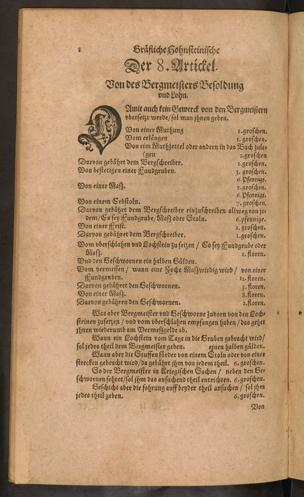 2 Gräfliche Hohnsteinische
Der 8. Artickel.
Von des Bergmeisters Besoldung
vnd Lohn.
DAmit auch kein Gewerck von den Bergmeistern
vbersetzt werde / sol man jhnen geben.
Von einer Muthung 1. groschen.
Vom erlängen 1. groschen.
Von eim Muthzettel oder andern in das Buch zulegen 2. groschen
Darvon gebührt dem Bergschreiber. 1. groschen.
Von bestetigen einer Fundgruben. 3. groschen.
6. Pfennige.
Von einer Maß. 1. groschen.
6. Pfennige.
Von einem Erbstoln. 7. groschen.
Darvon gebührt dem Bergschreiber einzuschreiben allweg von jedem / Es sey Fundgrube, Maß oder Stoln. 6. pfennige.
Von einer Frist. 2. groschen.
Darvon gebührt dem Bergschreiber. 1. groschen.
Vom vberschlahen vnd Lochstein zu setzen / Es sey Fundgrube oder
Maß. 1. floren.
Vnd den Geschwornen ein halben Gülden.
Vom vermessen / wann eine Zeche Maßwirdig wird / von einer
Fundgruben. 12. floren.
Darvon gebührt den Geschwornen. 3. floren.
Von einer Maß. 3. floren.
Darvon gebühren den Geschwornen. 1. floren.
Was aber Bergmeister vnd Geschworne zuvorn von den Lochsteinen zusetzen / vnd vom vberschlahen empfangen haben / das gehet
jhnen wiederumb am Vermeßgelde ab.
Wann ein Lochstein vom Tage in die Gruben gebracht wird /
sol jedes theil dem Bergmeister geben. einen halben gülden.
Wann aber die Stuffen förder von einem Stoln oder von einer
strecken gebracht wird / da gebührt jhm von jedem theil. 6. groschen.
So der Bergmeister in Kriegischen Sachen / neben den Geschwornen fehret / sol jhm das ansuchend theil entrichten. 6. groschen.
Geschicht aber die fahrung auff beyder theil ansuchen / sol jhm
jedes theil geben. 6. groschen.
Von